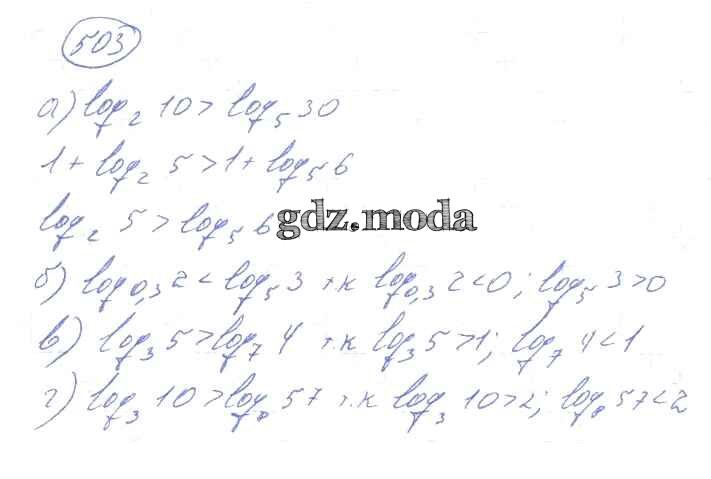 503
а) log₂ 10 > log₅ 30
1 + log₂ 5 > 1 + log₅ 6
log₂ 5 > log₅ 6
gdz.moda
б) log₀,₃ 2 < log₅ 3 т.к log₀,₃ 2 < 0; log₅ 3 > 0
в) log₃ 5 > log₇ 4 т.к log₃ 5 > 1; log₇ 4 < 1
г) log₃ 10 > log₈ 57 т.к log₃ 10 > 2; log₈ 57 < 2